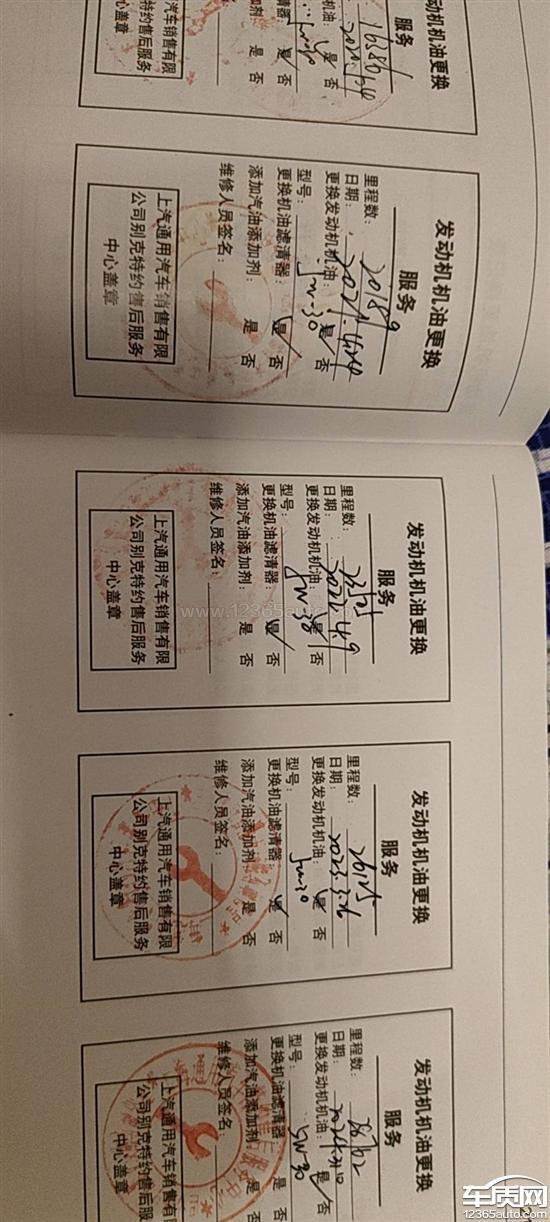 发动机机油更换
里程数：16386
日期：
是 否
上汽通用汽车销售有限
公司别克特约售后服务
中心盖章
发动机机油更换
服务
里程数：20189
日期：
更换发动机机油：是 否
型号：5W-30
更换机油滤清器：是 否
添加汽油添加剂：是 否
维修人员签名：
上汽通用汽车销售有限
公司别克特约售后服务
中心盖章
发动机机油更换
服务
里程数：
日期：2022.4.9
更换发动机机油：是 否
型号：5W-30
更换机油滤清器：是 否
添加汽油添加剂：是 否
维修人员签名：
上汽通用汽车销售有限
公司别克特约售后服务
中心盖章
发动机机油更换
服务
里程数：26125
日期：2023.3.26
更换发动机机油：是 否
型号：5W-30
更换机油滤清器：是 否
添加汽油添加剂：是 否
维修人员签名：
上汽通用汽车销售有限
公司别克特约售后服务
中心盖章
发动机机油更换
服务
里程数：28762
日期：
更换发动机机油：是 否
型号：5W30
更换机油滤清器：是
添加汽油添加剂：
维修人员签名：
上汽通用汽车销售有限
公司别克特约售后服务
中心盖章
www.12365auto.com
车质网
12365auto.com